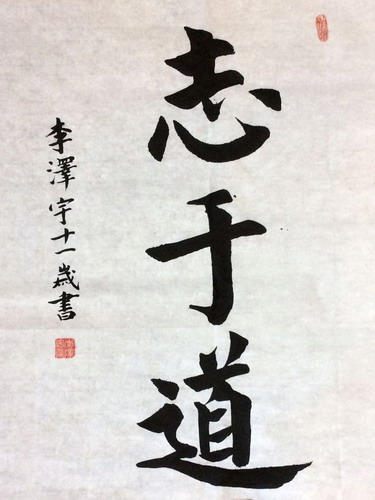 志于道
李澤宇十一歲書